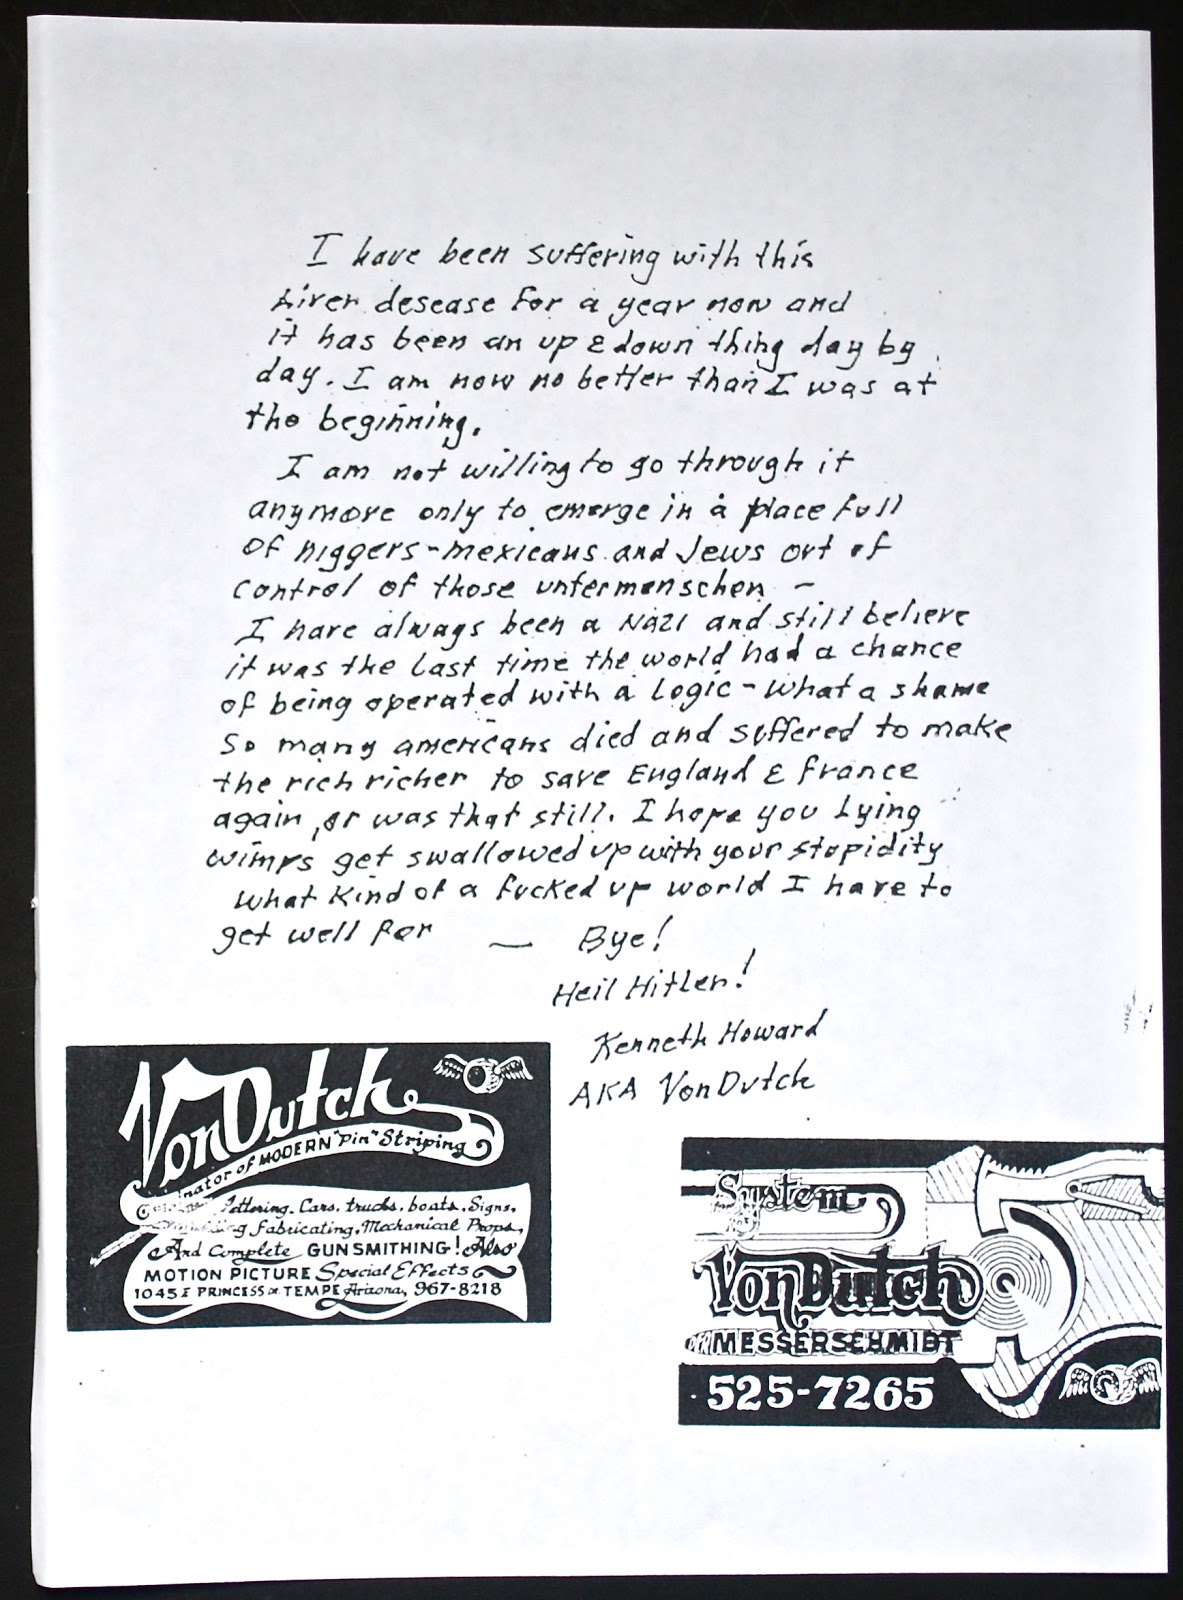 I have been suffering with this
Liver desease for a year now and
it has been an up & down thing day by
day. I am now no better than I was at
the beginning.
I am not willing to go through it
anymore only to emerge in a place full
of niggers-mexicans and Jews out of
control of those untermenschen -
I have always been a NAZI and still believe
it was the last time the world had a chance
of being operated with a logic - what a shame
so many americans died and suffered to make
the rich richer to save England & france
again, or was that still. I hope you Lying
wimps get swallowed up with your stupidity
what kind of a fucked up world I have to
get well for — Bye!
Heil Hitler!
Kenneth Howard
AKA Von Dutch
Von Dutch
of MODERN "Pin" Striping
Cars, trucks, boats, Signs,
Fabricating, Mechanical Props,
And Complete GUNSMITHING! Also
MOTION PICTURE Special Effects
1045 E PRINCESS DR. TEMPE Arizona, 967-8218
System
Von Dutch
MESSERSCHMIDT
525-7265